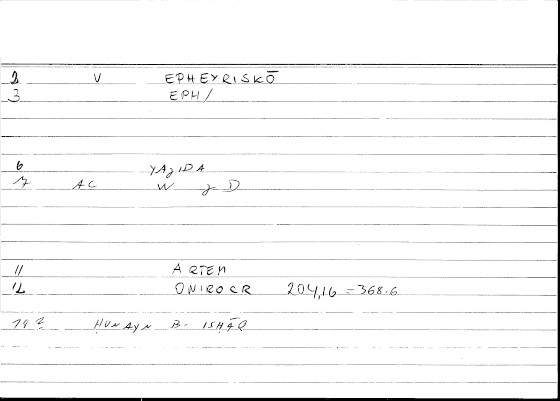 2 V EPHEYRISKŌ
3 EPH/
6 YAJIDA
7 AC W J D
11 ARTEM
12 ONIROCR 204,16 = 368.6
14 2 HUNAYN B. ISHĀQ